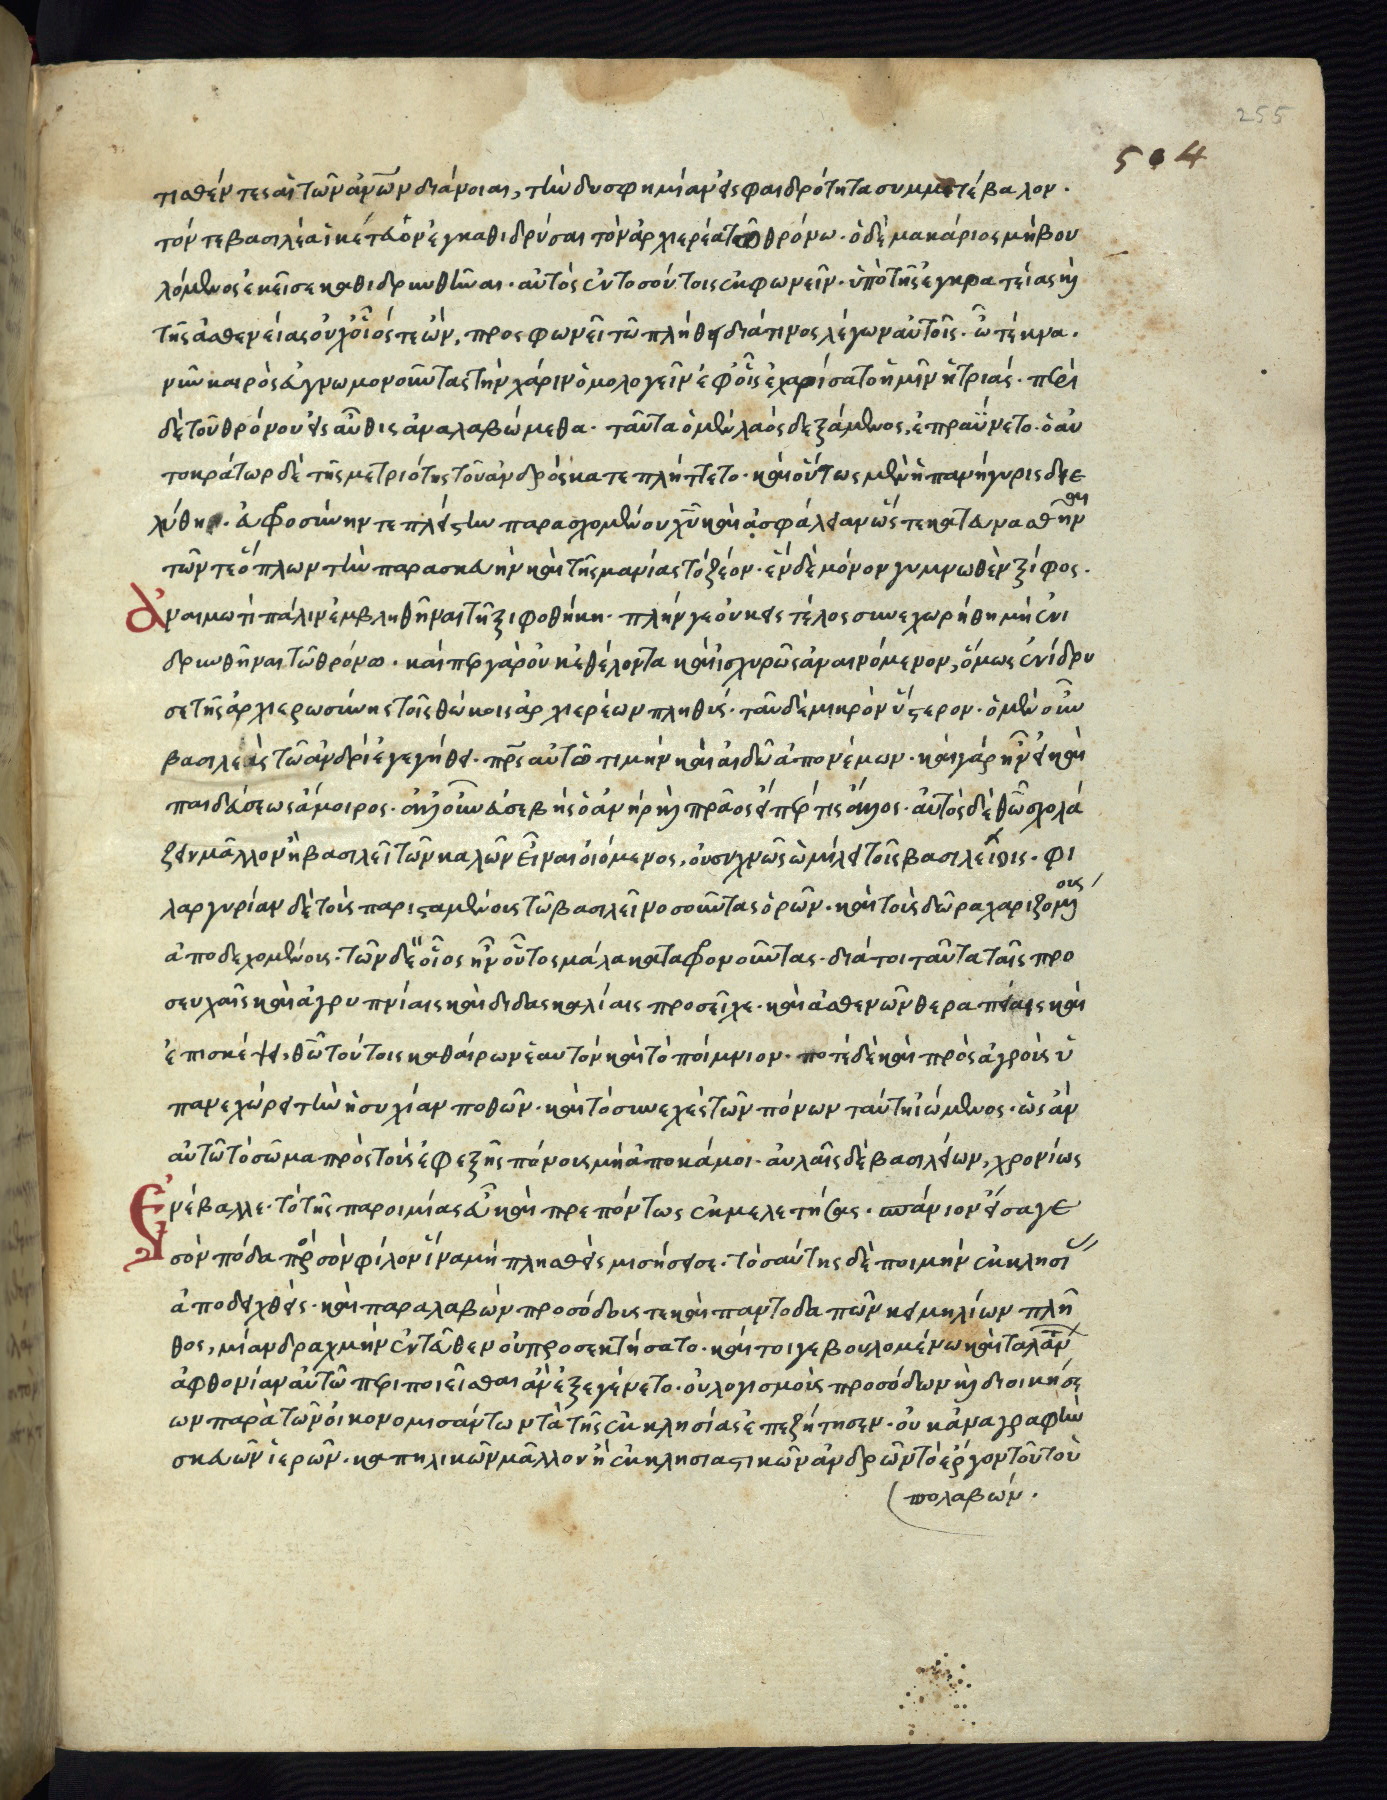 255
504
τιαθέντες αἱ τῶν ἀνῶν διάνοιαι, τὴν δυσφημίαν εἰς φαιδρότητα συμμετέβαλον.
τόν τε βασιλέα ἱκέτευον ἐγκαθιδρύσαι τὸν ἀρχιερέα τῷ θρόνω. ὁ δὲ μακάριος μὴ βου
λόμενος ἐκεῖσε καθιδρυνθῆναι. αὐτὸς ἐν τοσούτοις ἐκφωνεῖν. ὑπὸ τῆς ἐγκρατείας καὶ
τῆς ἀσθενείας οὐχ οἷός τε ὤν, προσφωνεῖ τῶ πλήθει διά τινος λέγων αὐτοῖς. ὦ τέκνα.
νῦν καιρὸς εὐγνωμονοῦντας τὴν χάριν ὁμολογεῖν ἐφ' οἷς ἐχαρίσατο ἡμῖν ἡ τριάς. περὶ
δὲ τοῦ θρόνου εἰς αὖθις ἀναλαβώμεθα. ταῦτα ὁ μὲν λαὸς δεξάμενος, ἐπραΰνετο. ὁ αὐ
τοκράτωρ δὲ τῆς μετριότητος τοῦ ἀνδρὸς κατεπλήττετο. καὶ οὕτως μὲν ἡ πανήγυρις διε
λύθη. εὐφροσύνην τε πλείστην παρασχομένου χῦ καὶ ἀσφάλειαν ὥστε κατευνασθῆναι
τῶν τε ὅπλων τὴν παρασκευὴν καὶ τῆς μανίας τὸ ζέον. ἓν δὲ μόνον γυμνωθὲν ξίφος.
ἀναιμωτὶ πάλιν ἐμβληθῆναι τῆ ξιφοθήκη. πλήν γε οὐκ εἰς τέλος συνεχωρήθη μὴ ἐνι
δρυνθῆναι τῶ θρόνω. καίπερ γὰρ οὐκ ἐθέλοντα καὶ ἰσχυρῶς ἀναινόμενον, ὅμως ἐνίδρυ
σε τῆς ἀρχιερωσύνης τοῖς θώκοις ἀρχιερέων πληθύς. ταῦ δὲ μικρὸν ὕστερον. ὁ μὲν οὖν
βασιλεὺς τῶ ἀνδρὶ ἐγεγήθει. πρὸς αὐτῶ τιμὴν καὶ αἰδῶ ἀπονέμων. καὶ γὰρ ἦν εἰ καὶ
παιδεύσεως ἄμοιρος. ἀλλ' οὖν εὐσεβὴς ὁ ἀνὴρ καὶ πρᾶος εἴπερ τις ἄλλος. αὐτὸς δὲ θῶ σχολά
ζειν μᾶλλον ἢ βασιλεῖ τῶν καλῶν εἶναι οἰόμενος, οὐ συχνῶς ὡμίλει τοῖς βασιλείοις. φι
λαργυρίαν δὲ τοὺς παρισταμένους τῶ βασιλεῖ νοσοῦντας ὁρῶν. καὶ τοὺς δῶρα χαριζομένους
ἀποδεχομένους. τῶν δὲ οἷος ἦν οὗτος μάλα καταφρονοῦντας. διά τοι ταῦτα ταῖς προ
σευχαῖς καὶ ἀγρυπνίαις καὶ διδασκαλίαις προσεῖχε. καὶ ἀσθενῶν θεραπείαις καὶ
ἐπισκέψει, θῶ τούτοις καθαίρων ἑαυτὸν καὶ τὸ ποίμνιον. ποτὲ δὲ καὶ πρὸς ἀγροὺς ὑ
πανεχώρει τὴν ἡσυχίαν ποθῶν. καὶ τὸ συνεχὲς τῶν πόνων ταύτῃ ἰώμενος. ὡς ἂν
αὐτῶ τὸ σῶμα πρὸς τοὺς ἐφεξῆς πόνους μὴ ἀποκάμοι. αὐλαῖς δὲ βασιλείων, χρονίως
ἐνέβαλλε. τὸ τῆς παροιμίας εὖ καὶ πρεπόντως ἐκμελετήσας. σπάνιον εἴσαγε
σὸν πόδα πρὸς σὸν φίλον ἵνα μὴ πλησθεὶς μισήσει σε. τοσαύτης δὲ ποιμὴν ἐκκλησί
ἀποδειχθείς. καὶ παραλαβὼν προσόδους τε καὶ παντοδαπῶν κειμηλίων πλῆ
θος, μίαν δραχμὴν ἐντεῦθεν οὐ προσεκτήσατο. καίτοι γε βουλομένω καὶ ταλάν
ἀφθονίαν αὐτῶ περιποιεῖσθαι ἂν ἐξεγένετο. οὐ λογισμοὺς προσόδων καὶ διοικήσε
ων παρὰ τῶν οἰκονομισάντων τὰ τῆς ἐκκλησίας ἐπεζήτησεν. οὐκ ἀναγραφὴν
σκευῶν ἱερῶν. καπηλικῶν μᾶλλον ἢ ἐκκλησιαστικῶν ἀνδρῶν τὸ ἔργον τοῦτο ὑ
πολαβών.